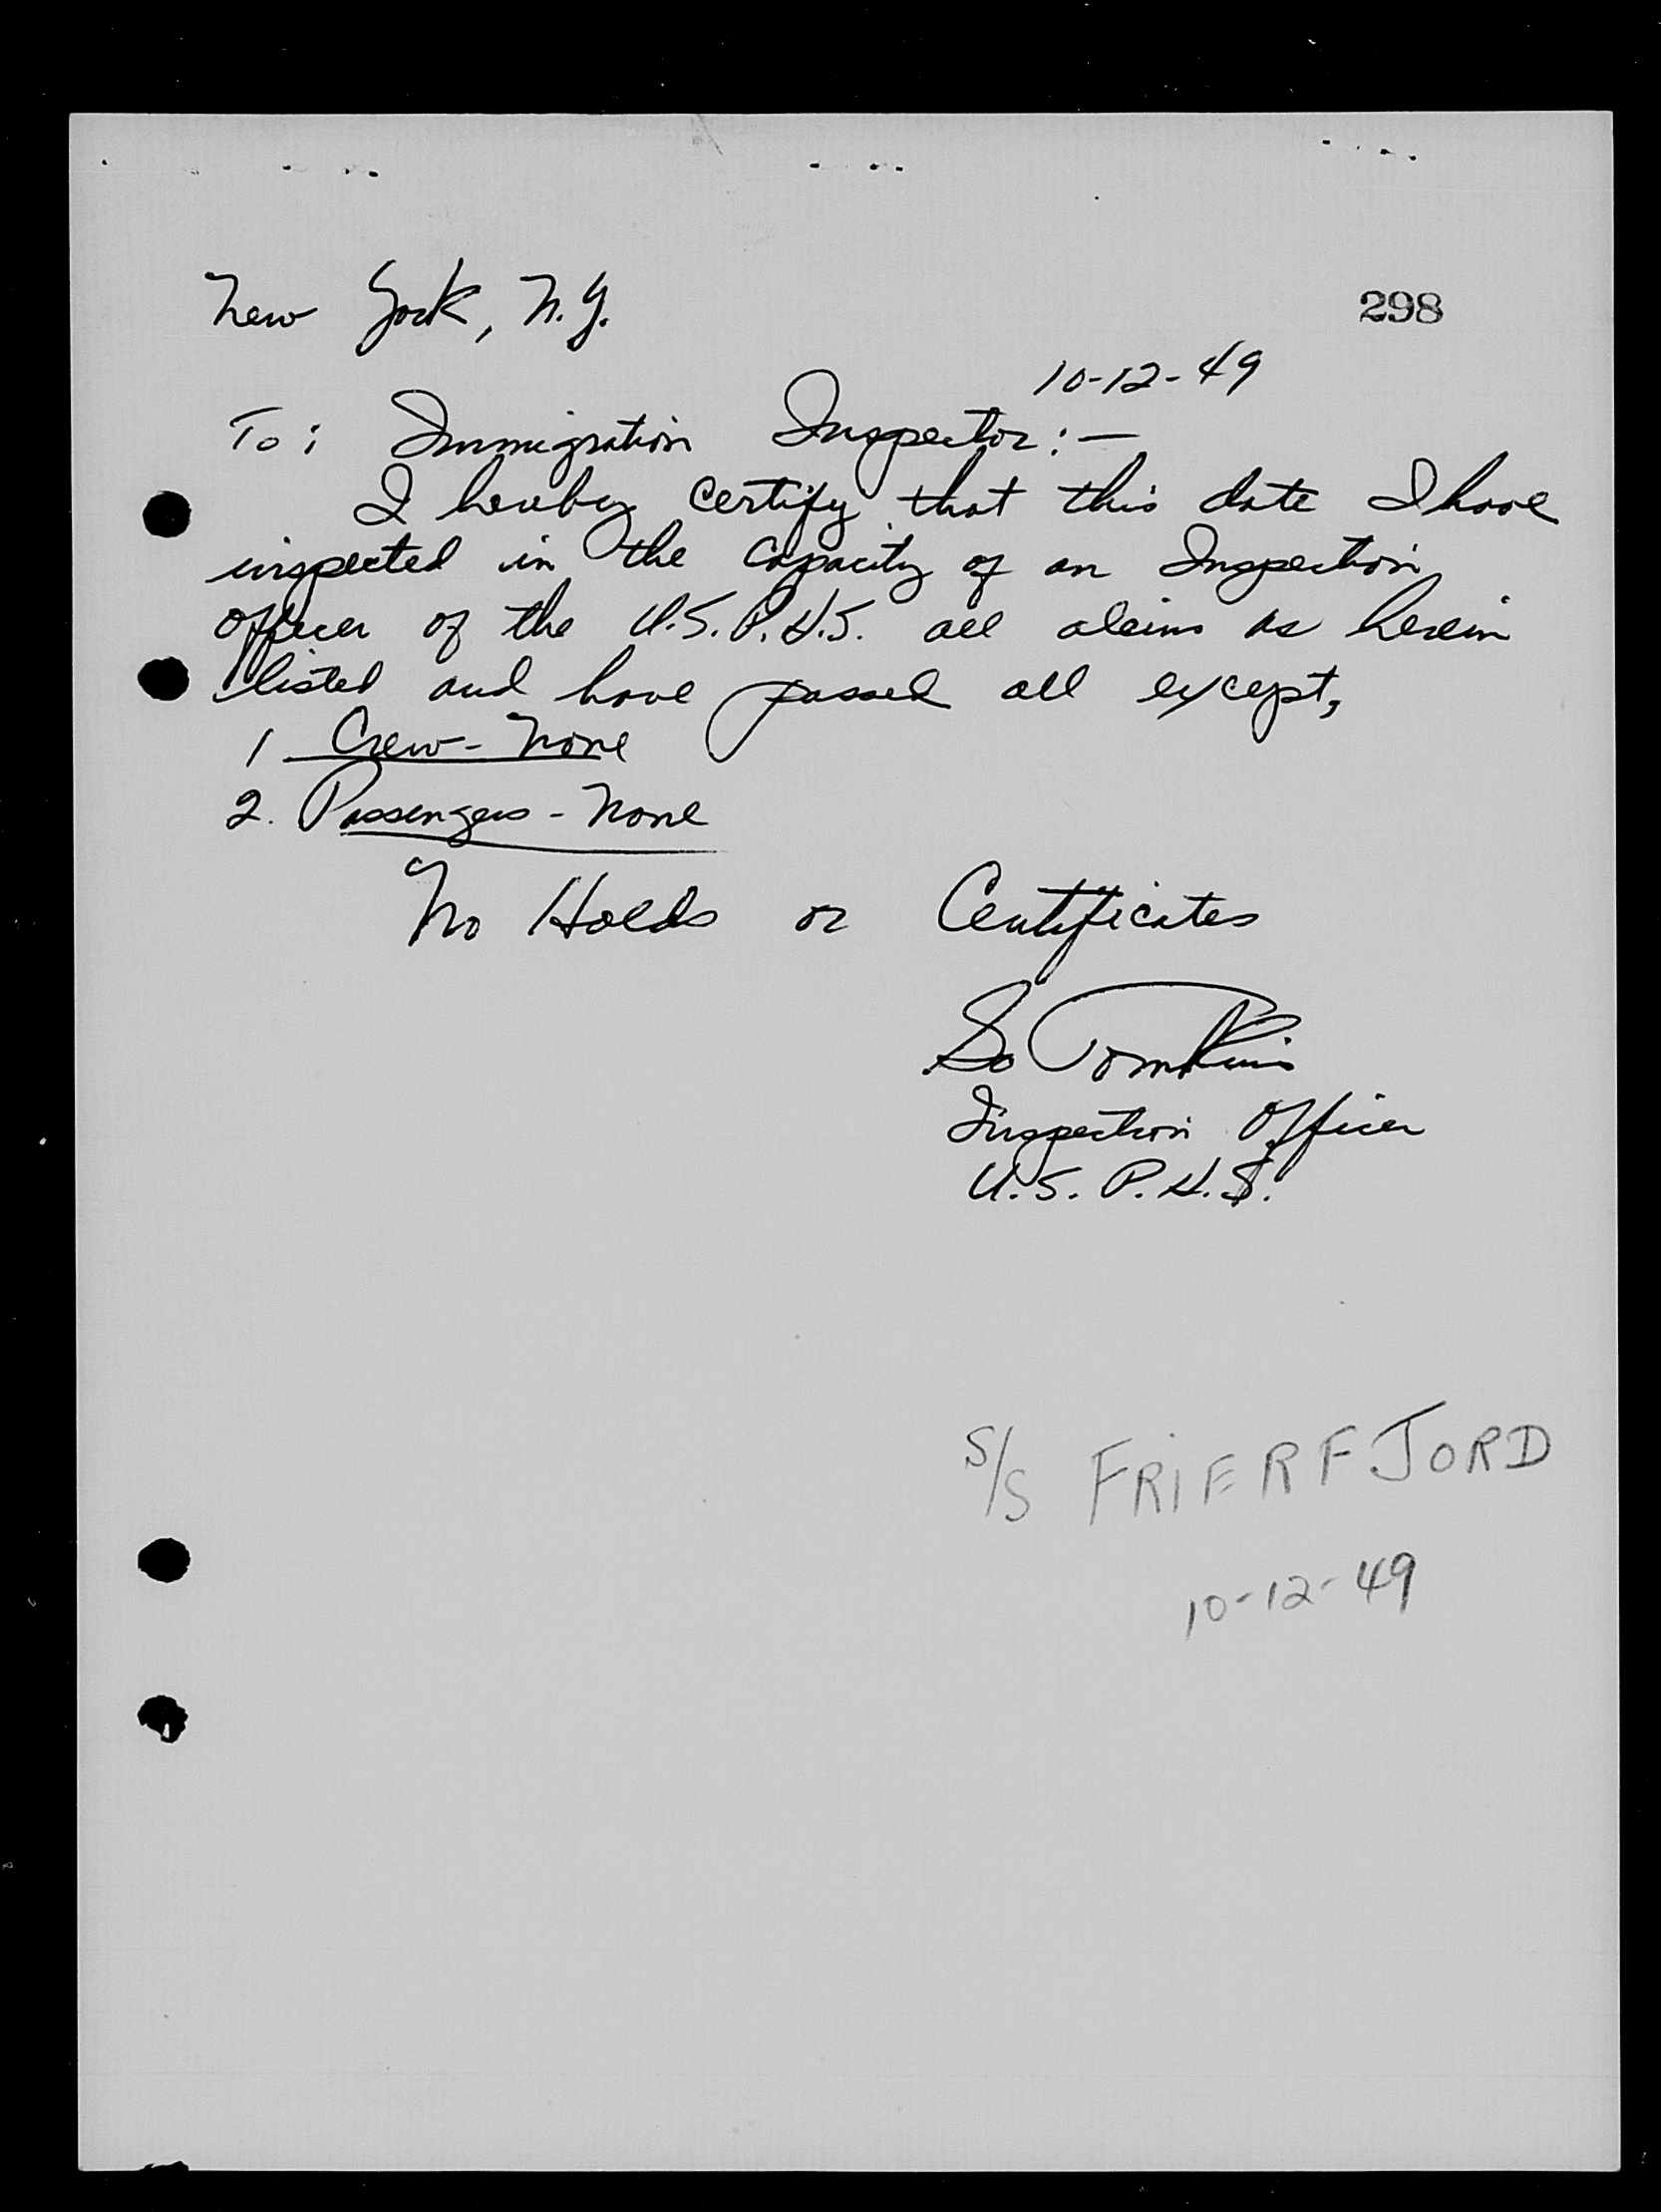 New York, N.Y.
298
10-12-49
To: Immigration Inspector:—
I hereby certify that this date I have
inspected in the capacity of an Inspection
Officer of the U.S.P.H.S. all aleins as herein
listed and have passed all except,
1 Crew - None
2. Passengers - None
No Holds or Certificates
Tomkins
Inspection Officer
U.S. P.H.S.
S/S FRIERFJORD
10-12-49